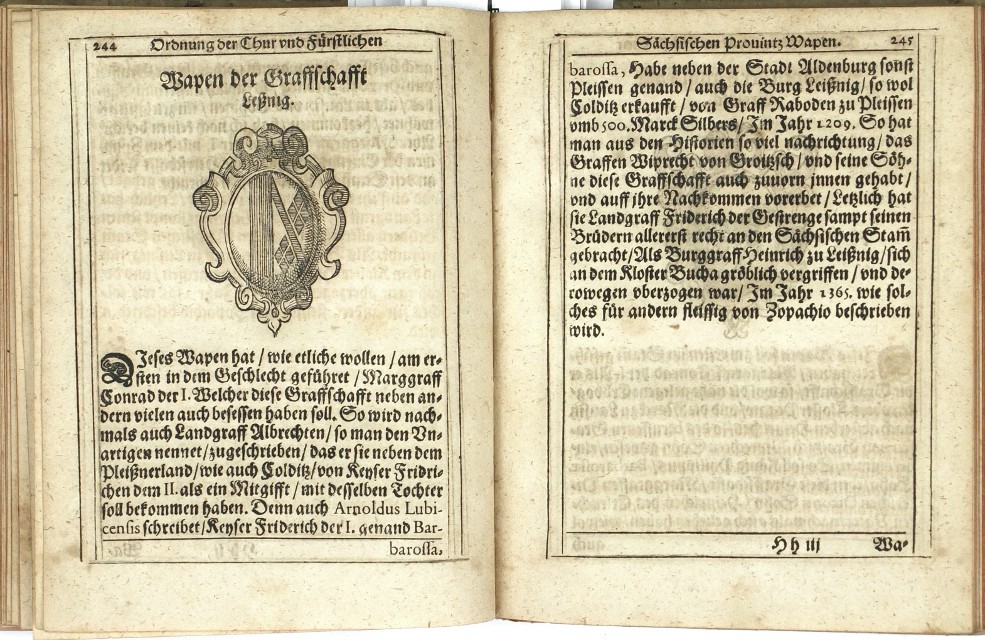 244 Ordnung der Chur vnd Fürstlichen
Wapen der Graffschafft
Leßnig.
DIeses Wapen hat / wie etliche wollen / am er-
sten in dem Geschlecht geführet / Marggraff
Conrad der I. Welcher diese Graffschafft neben an-
dern vielen auch besessen haben soll. So wird nach-
mals auch Landgraff Albrechten / so man den Vn-
artigen nennet / zugeschrieben / das er sie neben dem
Pleißnerland / wie auch Colditz / von Keyser Fridri-
chen dem II. als ein Mitgifft / mit desselben Tochter
soll bekommen haben. Denn auch Arnoldus Lubi-
censis schreibet / Keyser Friderich der I. genand Bar-
barossa,
Sächsischen Prouintz Wapen. 245
barossa, Habe neben der Stadt Aldenburg sonst
Pleissen genand / auch die Burg Leißnig / so wol
Colditz erkaufft / von Graff Raboden zu Pleissen
vmb 500. Marck Silbers / Im Jahr 1209. So hat
man aus den Historien so viel nachrichtung / das
Graffen Wiprecht von Groitzsch / vnd seine Söh-
ne diese Graffschafft auch zuuorn jnnen gehabt /
vnd auff ihre Nachkommen vorerbet / Letzlich hat
sie Landgraff Friderich der Gestrenge sampt seinen
Brüdern allererst recht an den Sächsischen Stam̄
gebracht / Als Burggraff Heinrich zu Leißnig / sich
an dem Kloster Bucha gröblich vergriffen / vnd de-
rowegen vberzogen war / Im Jahr 1365. wie sol-
ches für andern fleissig von Zopachio beschrieben
wird.
Hh iij Wa-